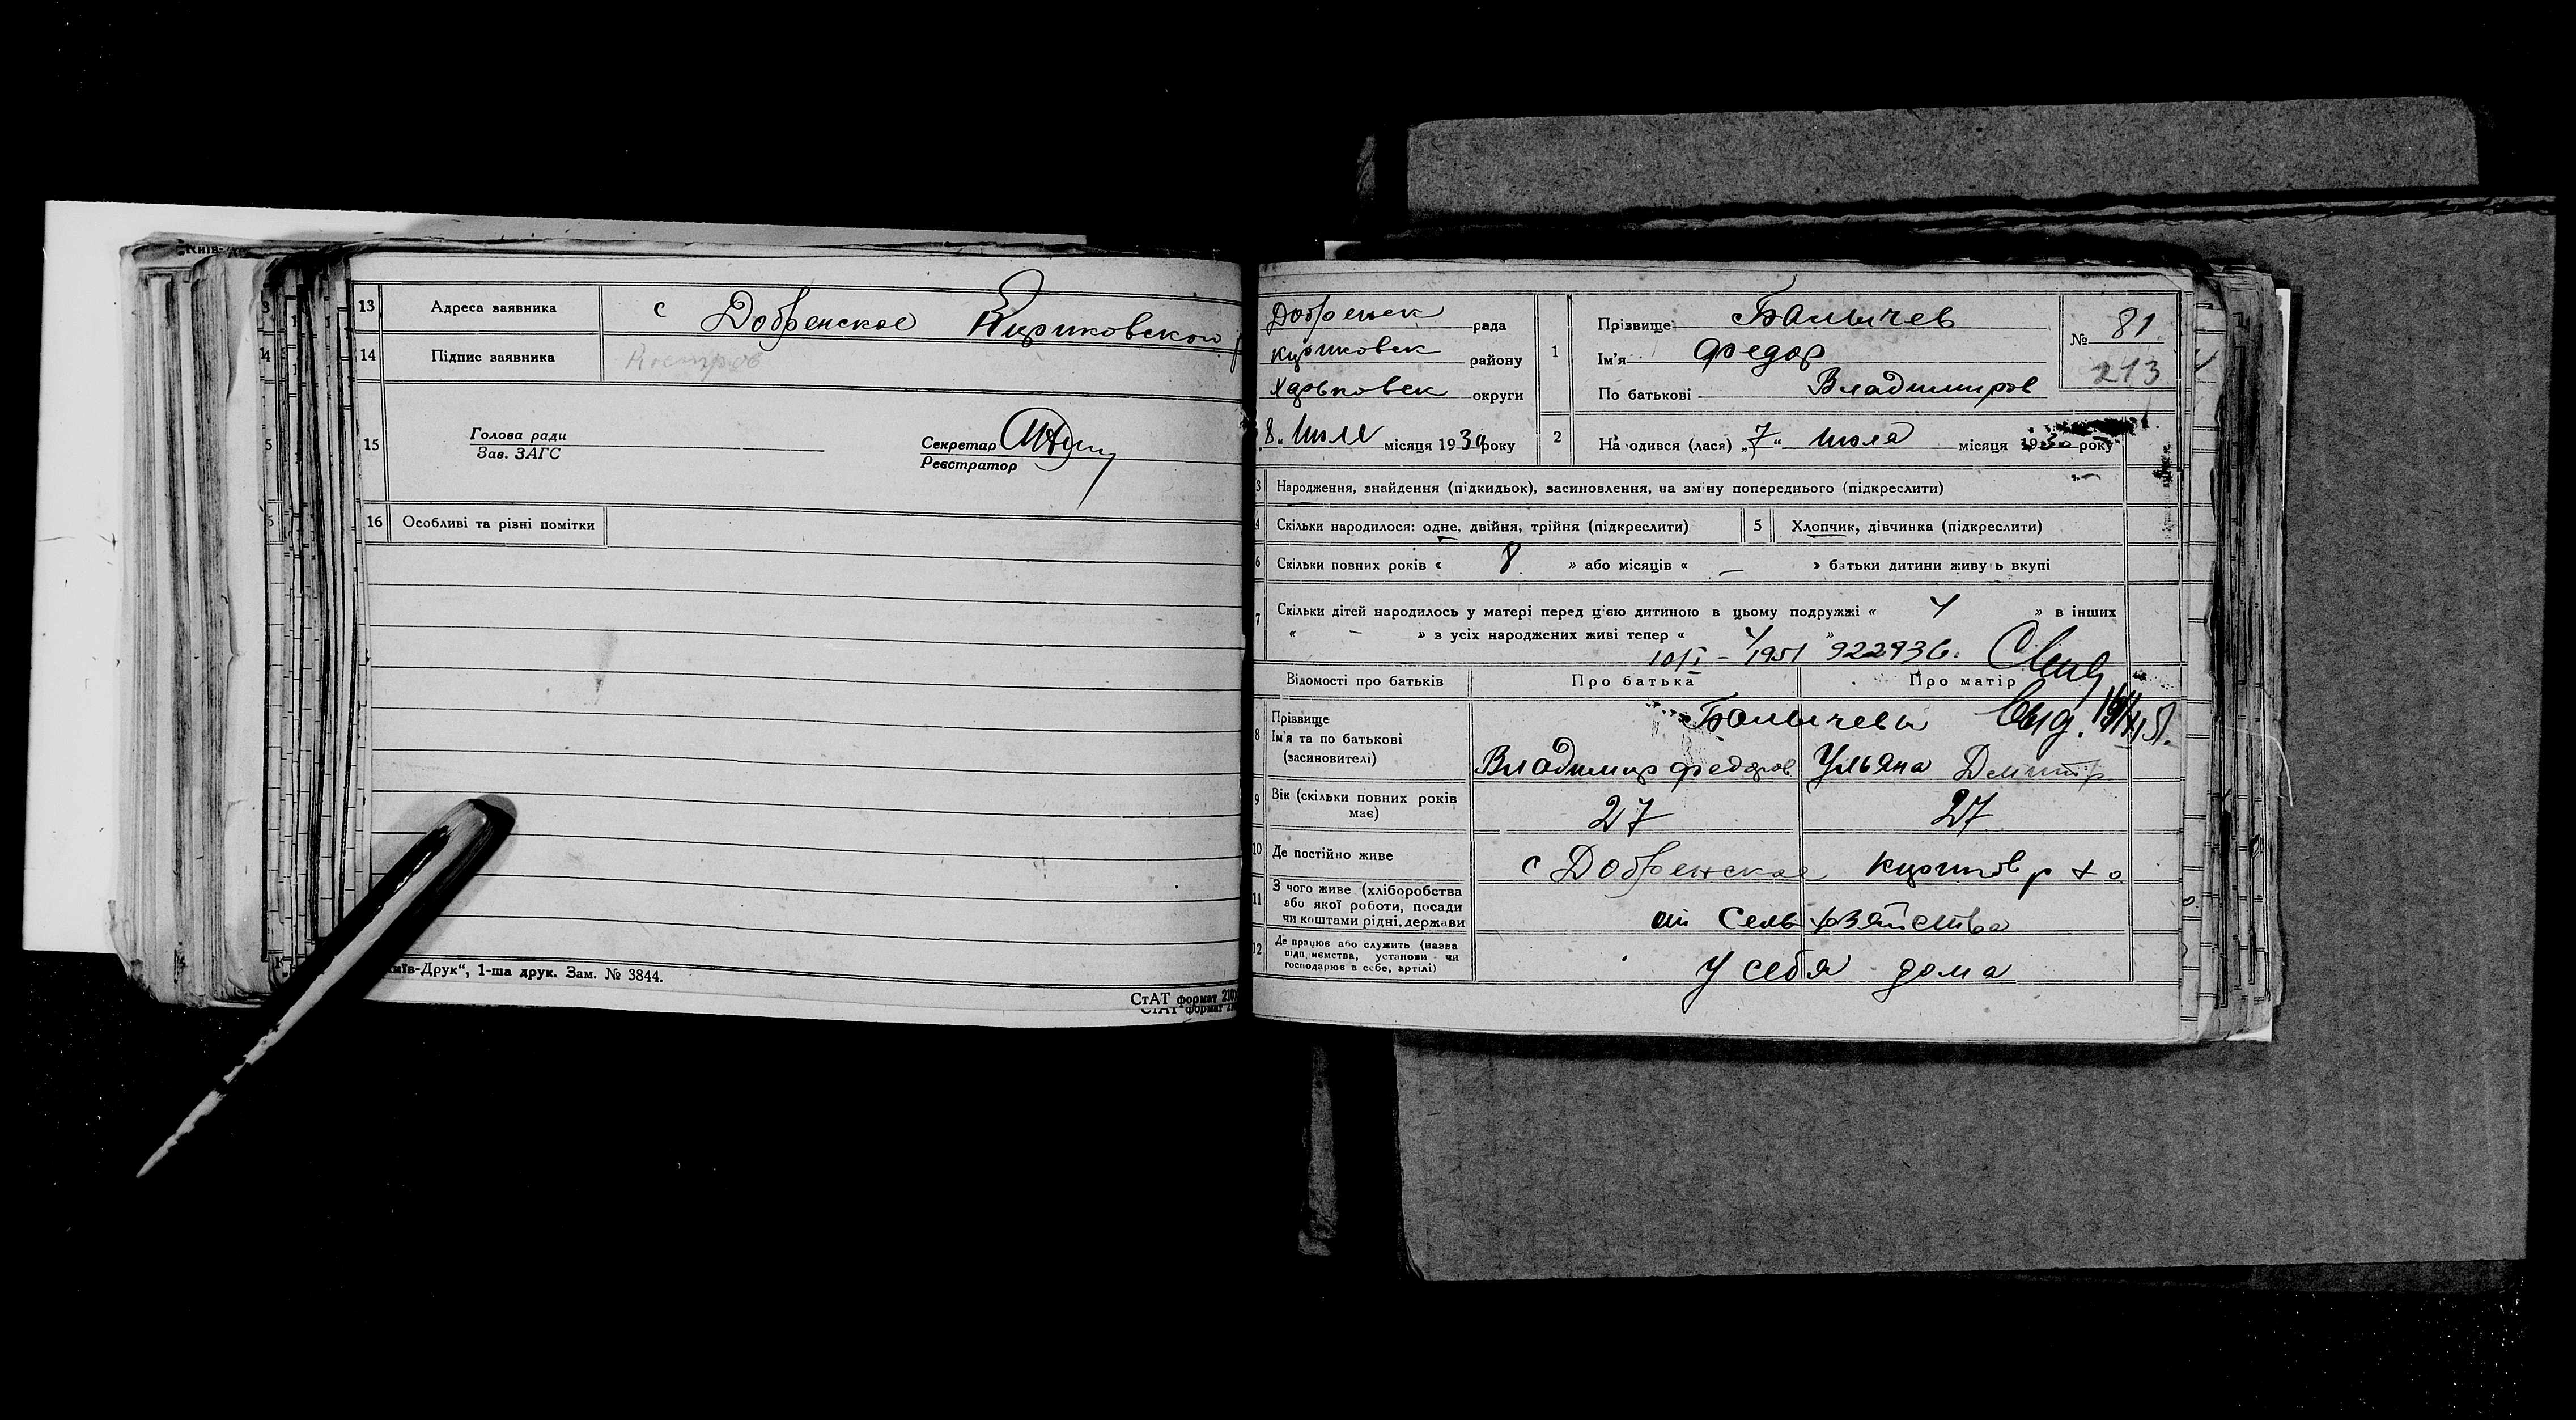 13 Адреса заявника с Добренское
14 Підпис заявника
15 Голова ради Секретар
Зав. ЗАГС Реєстратор
16 Особливі та різні помітки
Київ-Друк", 1-ша друк. Зам. № 3844.
СтАТ формат 210
Добренск рада
района районy
Харьковск округи
8 " Июля місяця 1930 року
1 Прізвище
Ім'я Федор
По батькові Владимиров
№ 81
213
2 Народився (лася) „7" Июля місяця 1930 року
3 Народження, знайдення (підкидьок), засиновлення, на зміну попереднього (підкреслити)
4 Скільки народилося: одне, двійня, трійня (підкреслити) 5 Хлопчик, дівчинка (підкреслити)
6 Скільки повних років « 8 » або місяців « — » батьки дитини живуть вкупі
7 Скільки дітей народилось у матері перед цією дитиною в цьому подружжі « 4 » в інших
« — » з усіх народжених живі тепер « 4 »
1951 922936.
Відомості про батьків Про батька Про матір
8 Прізвище
Ім'я та по батькові
(засновителі) Владимир Федоров Ульяна Дмитр
9 Вік (скільки повних років має) 27 27
10 Де постійно живе с Добренское
11 З чого живе (хліборобства або якої роботи, посади чи коштами рідні, держави от сель хозяйства
12 Де працює або служить (назва підприємства, установи чи господарює в себе, артілі) у себя дома